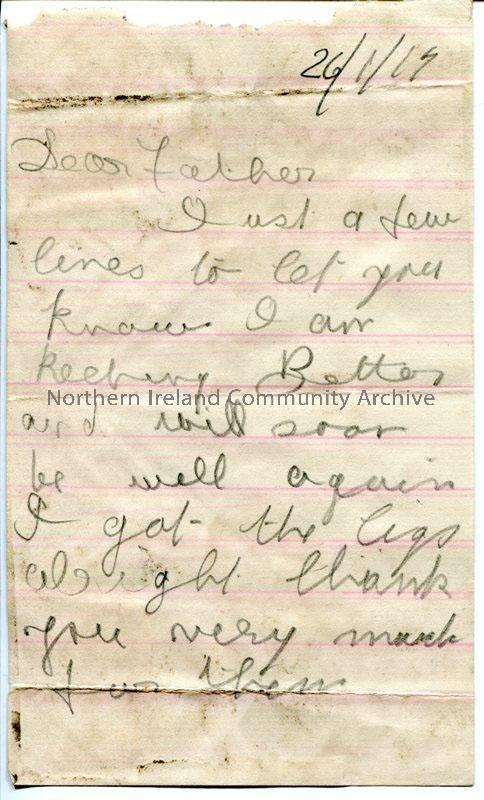 26/1/19
Dear Father
Just a few
lines to let you
know I am
keeping Better
Northern Ireland Community Archive
and will soon
be well again
I got the cigs
alright thank
you very much
for them